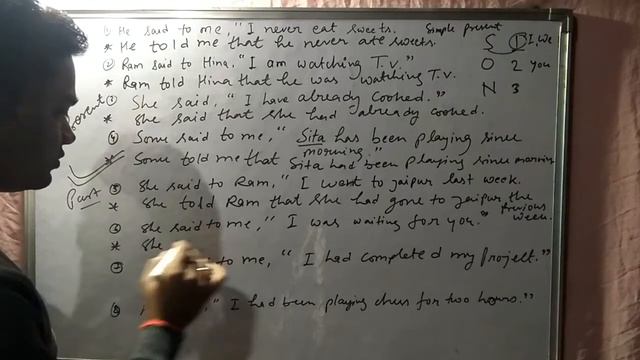 ① He said to me, "I never eat sweets. Simple present
* He told me that he never ate sweets. S 1 I, we
② Ram said to Hina, "I am watching T.v." O 2 you
* Ram told Hina that he was watching T.v. N 3
① She said, "I have already cooked."
* She said that she had already cooked.
④ Some said to me, "Sita has been playing since morning."
* Some told me that Sita had been playing since morning
Past ⑤ She said to Ram, "I went to jaipur last week.
* She told Ram that she had gone to jaipur the Previous week.
⑥ She said to me, "I was waiting for you."
* She
⑦ to me, "I had completed my Project."
⑧ "I had been playing chess for two hours."